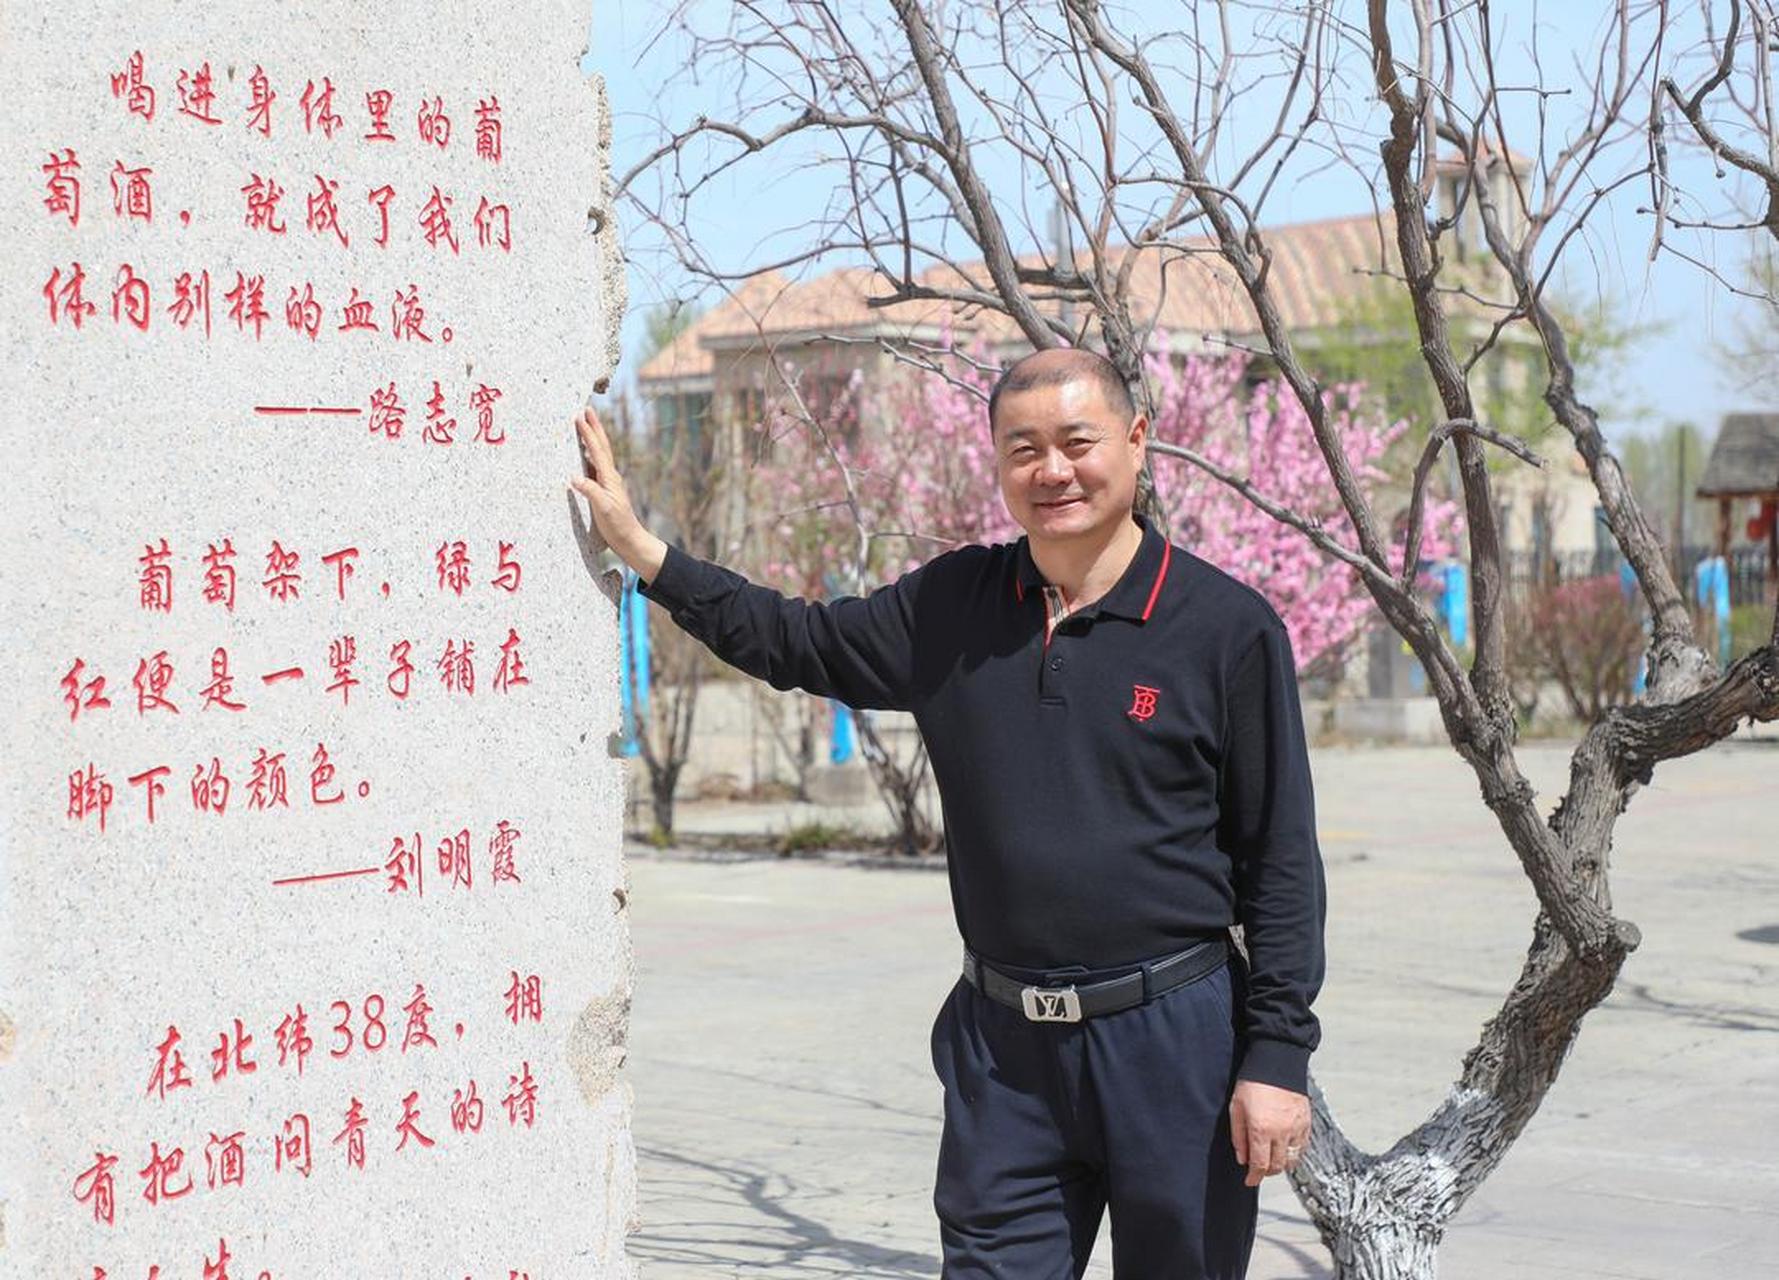 喝进身体里的葡
萄酒，就成了我们
体内别样的血液。
——路志宽
葡萄架下，绿与
红便是一辈子铺在
脚下的颜色。
——刘明霞
在北纬38度，拥
有把酒问青天的诗